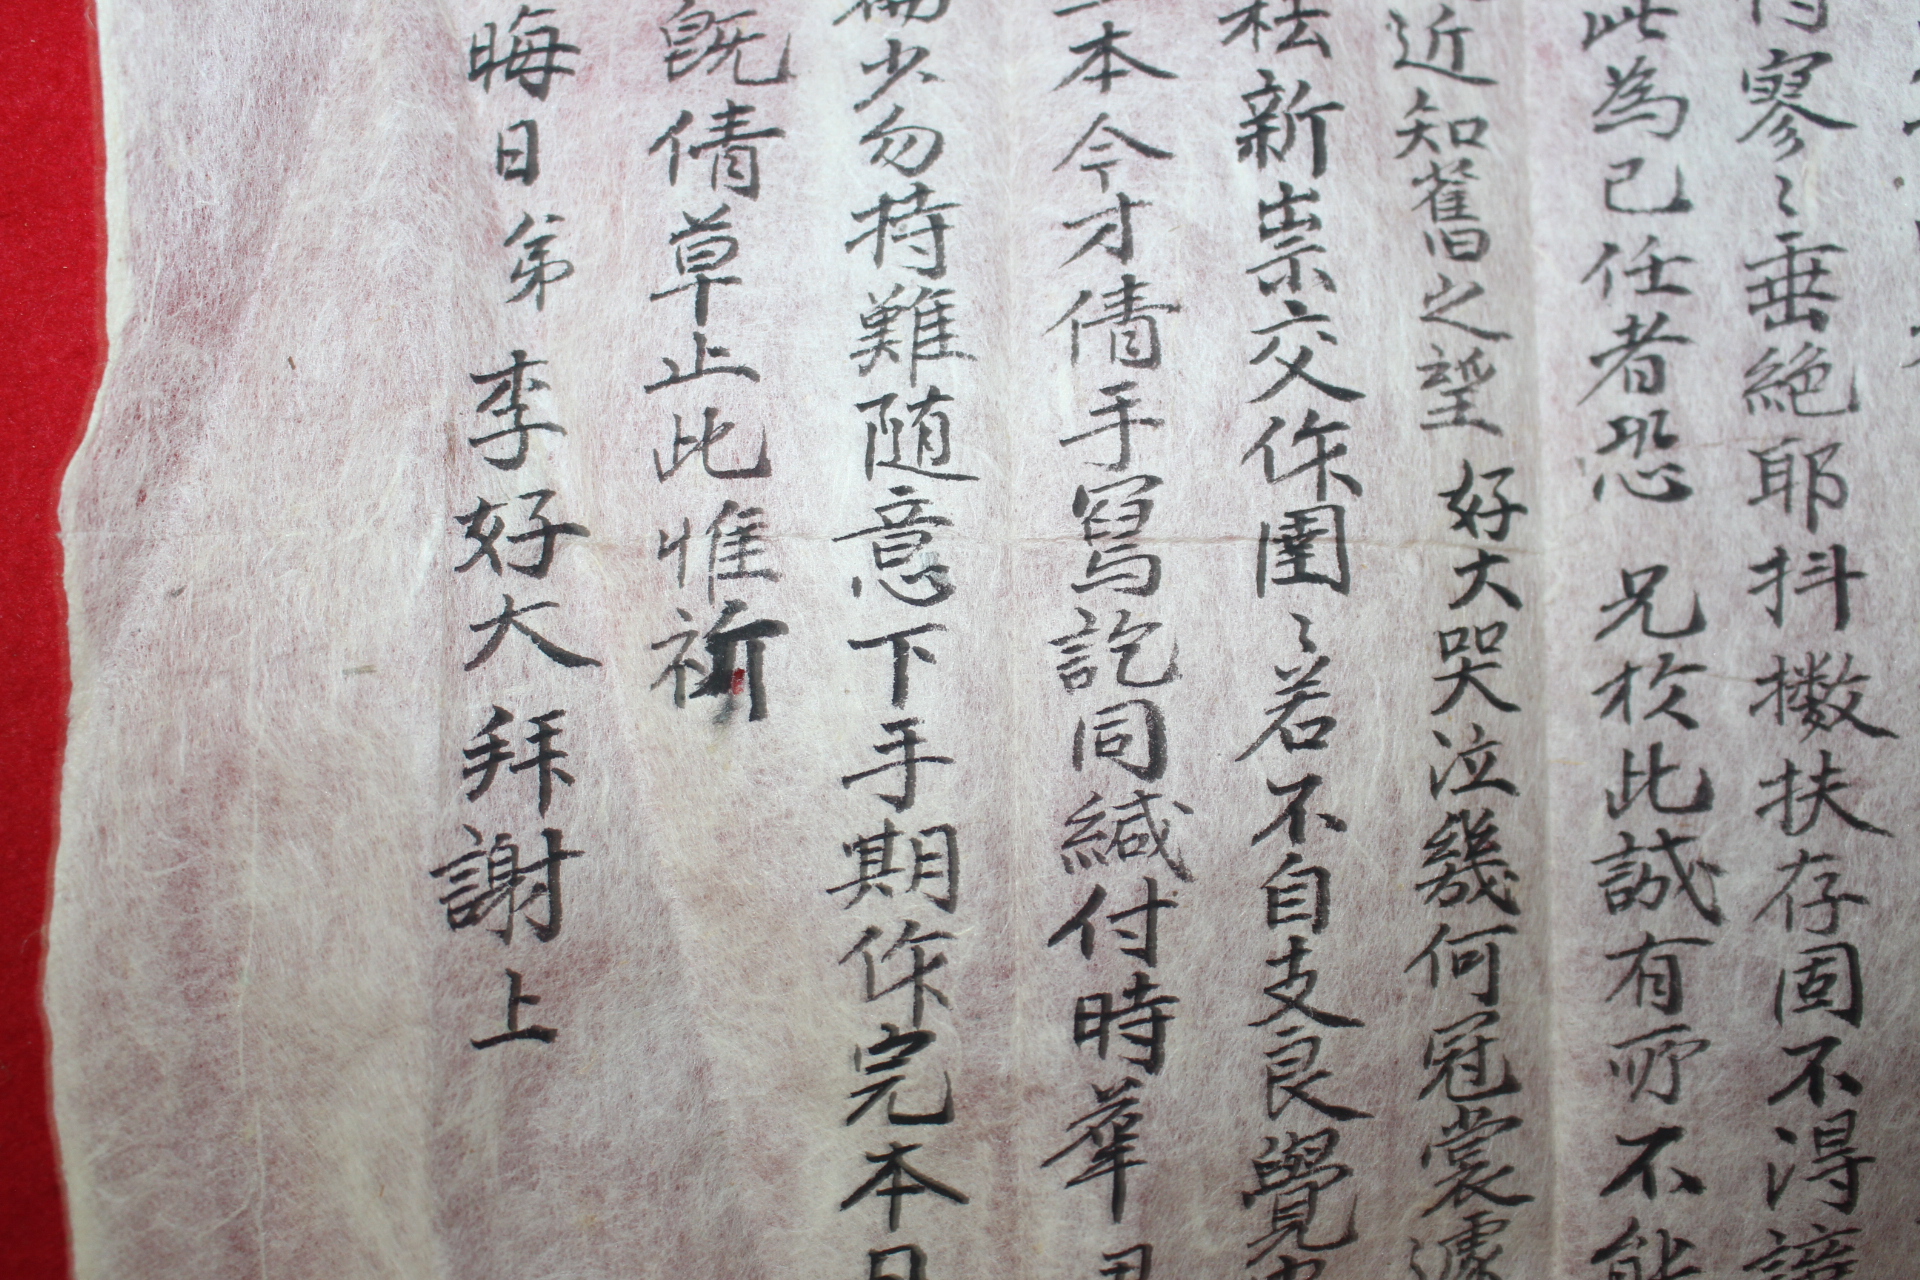 寥〻垂絶耶抖擻扶存固不得
此為己任者恐 兄於此誠有所不能
近知舊之望 好大哭泣幾何冠裳遽
新祟交作圉〻若不自支良覺
本今才倩手寫訖同緘付時羣
少勿持難随意下手期作完本日
旣倩草止此惟祈
晦日弟 李好大 拜謝上